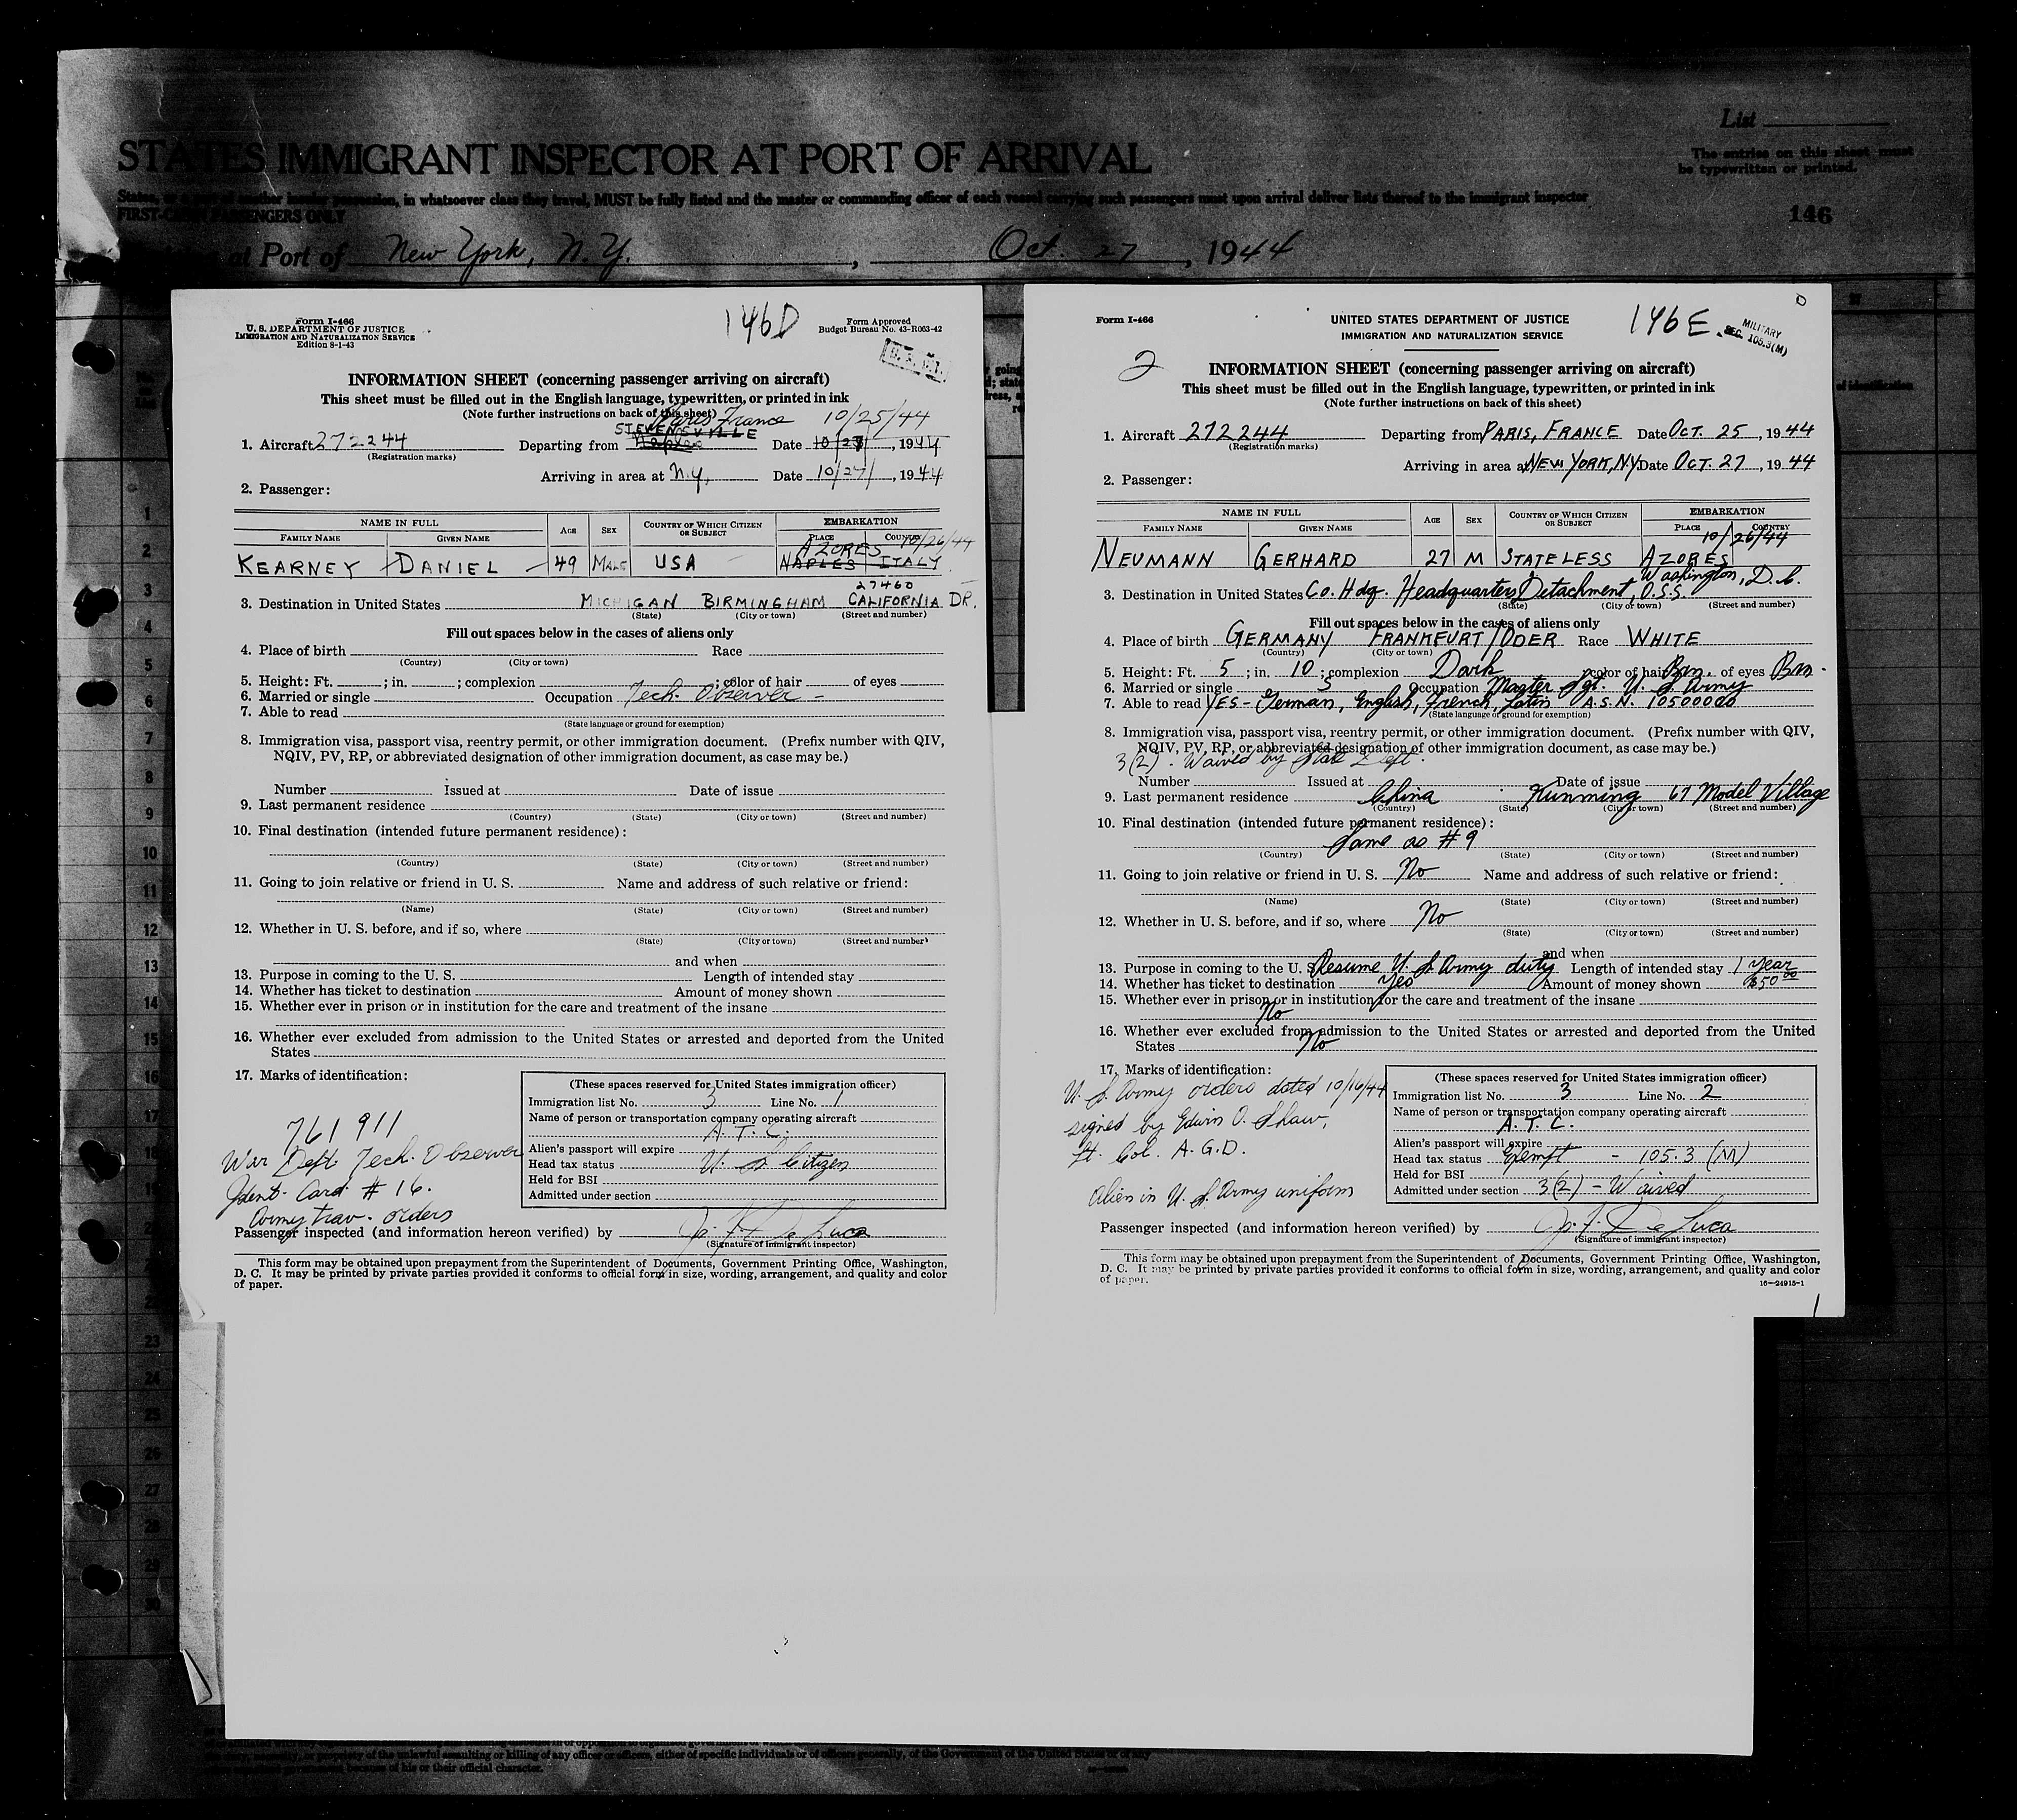 List
STATES IMMIGRANT INSPECTOR AT PORT OF ARRIVAL
The entries on this sheet must
be typewritten or printed.
States, or a port of another insular possession, in whatsoever class they travel, MUST be fully listed and the master or commanding officer of each vessel carrying such passengers must upon arrival deliver lists thereof to the immigrant inspector
FIRST-CABIN PASSENGERS ONLY
146
at Port of New York, N.Y., Oct. 27, 1944
Form I-466
U. S. DEPARTMENT OF JUSTICE
IMMIGRATION AND NATURALIZATION SERVICE
Edition 8-1-43
146D
Form Approved
Budget Bureau No. 43-R063-42
INFORMATION SHEET (concerning passenger arriving on aircraft)
This sheet must be filled out in the English language, typewritten, or printed in ink
(Note further instructions on back of this sheet)
Paris France 10/25/44
STEVENSVILLE
1. Aircraft 272244 Departing from Naples Date 10/23/, 1944
(Registration marks)
Arriving in area at N.Y. Date 10/27/, 1944
2. Passenger:
NAME IN FULL AGE SEX COUNTRY OF WHICH CITIZEN OR SUBJECT EMBARKATION
FAMILY NAME GIVEN NAME PLACE COUNTRY
AZORES 10/26/44
KEARNEY DANIEL 49 MALE USA NAPLES ITALY
27460
3. Destination in United States MICHIGAN BIRMINGHAM CALIFORNIA DR.
(State) (City or town) (Street and number)
Fill out spaces below in the cases of aliens only
4. Place of birth Race
(Country) (City or town)
5. Height: Ft. ; in. ; complexion ; color of hair of eyes
6. Married or single Occupation Tech. Observer -
7. Able to read
(State language or ground for exemption)
8. Immigration visa, passport visa, reentry permit, or other immigration document. (Prefix number with QIV,
NQIV, PV, RP, or abbreviated designation of other immigration document, as case may be.)
Number Issued at Date of issue
9. Last permanent residence
(Country) (State) (City or town) (Street and number)
10. Final destination (intended future permanent residence):
(Country) (State) (City or town) (Street and number)
11. Going to join relative or friend in U. S. Name and address of such relative or friend:
(Name) (State) (City or town) (Street and number)
12. Whether in U. S. before, and if so, where
(State) (City or town) (Street and number)
and when
13. Purpose in coming to the U. S. Length of intended stay
14. Whether has ticket to destination Amount of money shown
15. Whether ever in prison or in institution for the care and treatment of the insane
16. Whether ever excluded from admission to the United States or arrested and deported from the United
States
17. Marks of identification:
761911
War Dept Tech. Observer
Ident. Card # 16.
Army trav. orders
(These spaces reserved for United States immigration officer)
Immigration list No. 3 Line No. 1
Name of person or transportation company operating aircraft
A. T. C.
Alien's passport will expire
Head tax status U. S. Citizen
Held for BSI
Admitted under section
Passenger inspected (and information hereon verified) by Jo. F. De Luca
(Signature of immigrant inspector)
This form may be obtained upon prepayment from the Superintendent of Documents, Government Printing Office, Washington,
D. C. It may be printed by private parties provided it conforms to official form in size, wording, arrangement, and quality and color
of paper.
Form I-466
UNITED STATES DEPARTMENT OF JUSTICE
IMMIGRATION AND NATURALIZATION SERVICE
146E
MILITARY
SEC. 105.3(M)
2
INFORMATION SHEET (concerning passenger arriving on aircraft)
This sheet must be filled out in the English language, typewritten, or printed in ink
(Note further instructions on back of this sheet)
1. Aircraft 272244 Departing from PARIS, FRANCE Date OCT. 25, 1944
(Registration marks)
Arriving in area at NEW YORK, NY Date OCT. 27, 1944
2. Passenger:
NAME IN FULL AGE SEX COUNTRY OF WHICH CITIZEN OR SUBJECT EMBARKATION
FAMILY NAME GIVEN NAME PLACE COUNTRY
10/26/44
NEUMANN GERHARD 27 M STATELESS AZORES
Washington, D.C.
3. Destination in United States Co. Hdq. Headquarters Detachment, O.S.S.
(State) (City or town) (Street and number)
Fill out spaces below in the cases of aliens only
4. Place of birth GERMANY FRANKFURT/ODER Race WHITE
(Country) (City or town)
5. Height: Ft. 5 ; in. 10 ; complexion Dark ; color of hair Brn. of eyes Brn.
6. Married or single S Occupation Master Sgt. U. S. Army
7. Able to read YES - German, English, French, Latin A.S.N. 10500000
(State language or ground for exemption)
8. Immigration visa, passport visa, reentry permit, or other immigration document. (Prefix number with QIV,
NQIV, PV, RP, or abbreviated designation of other immigration document, as case may be.)
3(2) - Waived by State Dept.
Number Issued at Date of issue
9. Last permanent residence China Kunming 67 Model Village
(Country) (State) (City or town) (Street and number)
10. Final destination (intended future permanent residence):
Same as #9
(Country) (State) (City or town) (Street and number)
11. Going to join relative or friend in U. S. No Name and address of such relative or friend:
(Name) (State) (City or town) (Street and number)
12. Whether in U. S. before, and if so, where No
(State) (City or town) (Street and number)
and when
13. Purpose in coming to the U. S. Resume U. S. Army duty Length of intended stay 1 year
14. Whether has ticket to destination Yes Amount of money shown $50 00
15. Whether ever in prison or in institution for the care and treatment of the insane
No
16. Whether ever excluded from admission to the United States or arrested and deported from the United
States No
17. Marks of identification:
U. S. Army orders dated 10/16/44
signed by Edwin O. Shaw,
Lt. Col. A.G.D.
Alien in U. S. Army uniform
(These spaces reserved for United States immigration officer)
Immigration list No. 3 Line No. 2
Name of person or transportation company operating aircraft
A. T. C.
Alien's passport will expire
Head tax status Exempt - 105.3 (M)
Held for BSI
Admitted under section 3(2) - Waived
Passenger inspected (and information hereon verified) by Jo. F. De Luca
(Signature of immigrant inspector)
This form may be obtained upon prepayment from the Superintendent of Documents, Government Printing Office, Washington,
D. C. It may be printed by private parties provided it conforms to official form in size, wording, arrangement, and quality and color
of paper.
16—24915-1